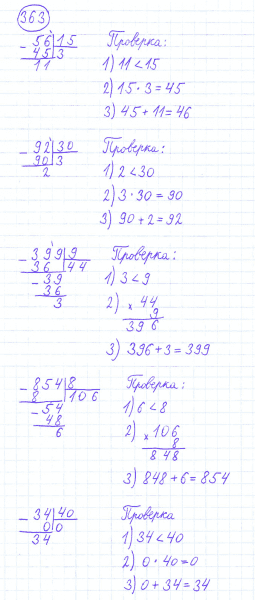 363
- 56 | 15 Проверка:
45 | 3
11 1) 11 < 15
2) 15 · 3 = 45
3) 45 + 11 = 46
- 92 | 30 Проверка:
90 | 3
2 1) 2 < 30
2) 3 · 30 = 90
3) 90 + 2 = 92
- 399 | 9 Проверка:
36 | 44
- 39 1) 3 < 9
36 2) × 44
3 9
396
3) 396 + 3 = 399
- 854 | 8 Проверка:
8 | 106
- 54 1) 6 < 8
48 2) × 106
6 8
848
3) 848 + 6 = 854
- 34 | 40 Проверка
0 | 0
34 1) 34 < 40
2) 0 · 40 = 0
3) 0 + 34 = 34